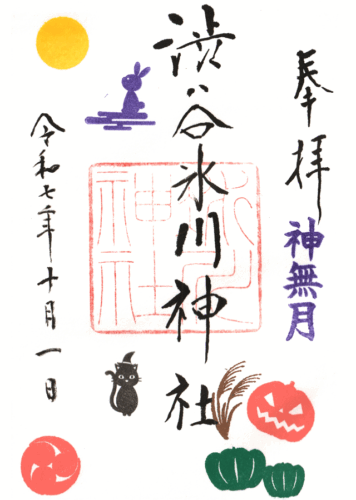 奉拝
神無月
渋谷氷川神社
令和七年十月一日